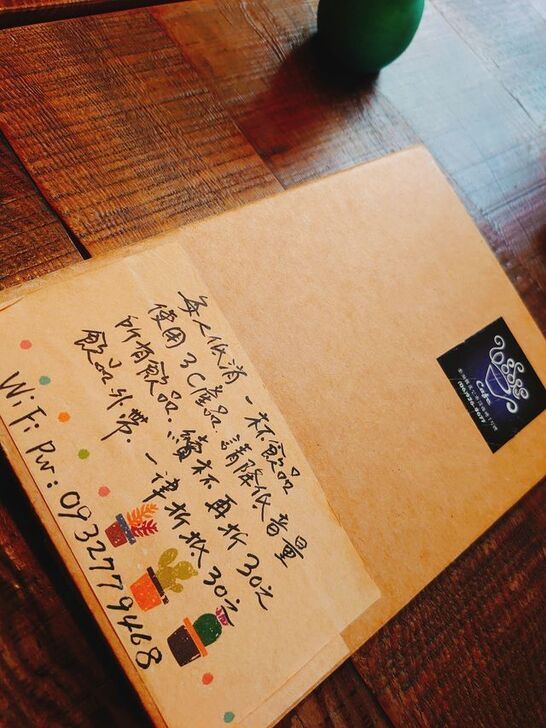 每人低消一杯飲品
使用3C產品.請降低音量
所有飲品.續杯再折30元
飲品外帶.一律折抵30元
WiFi Pw:0932779468
Cafe